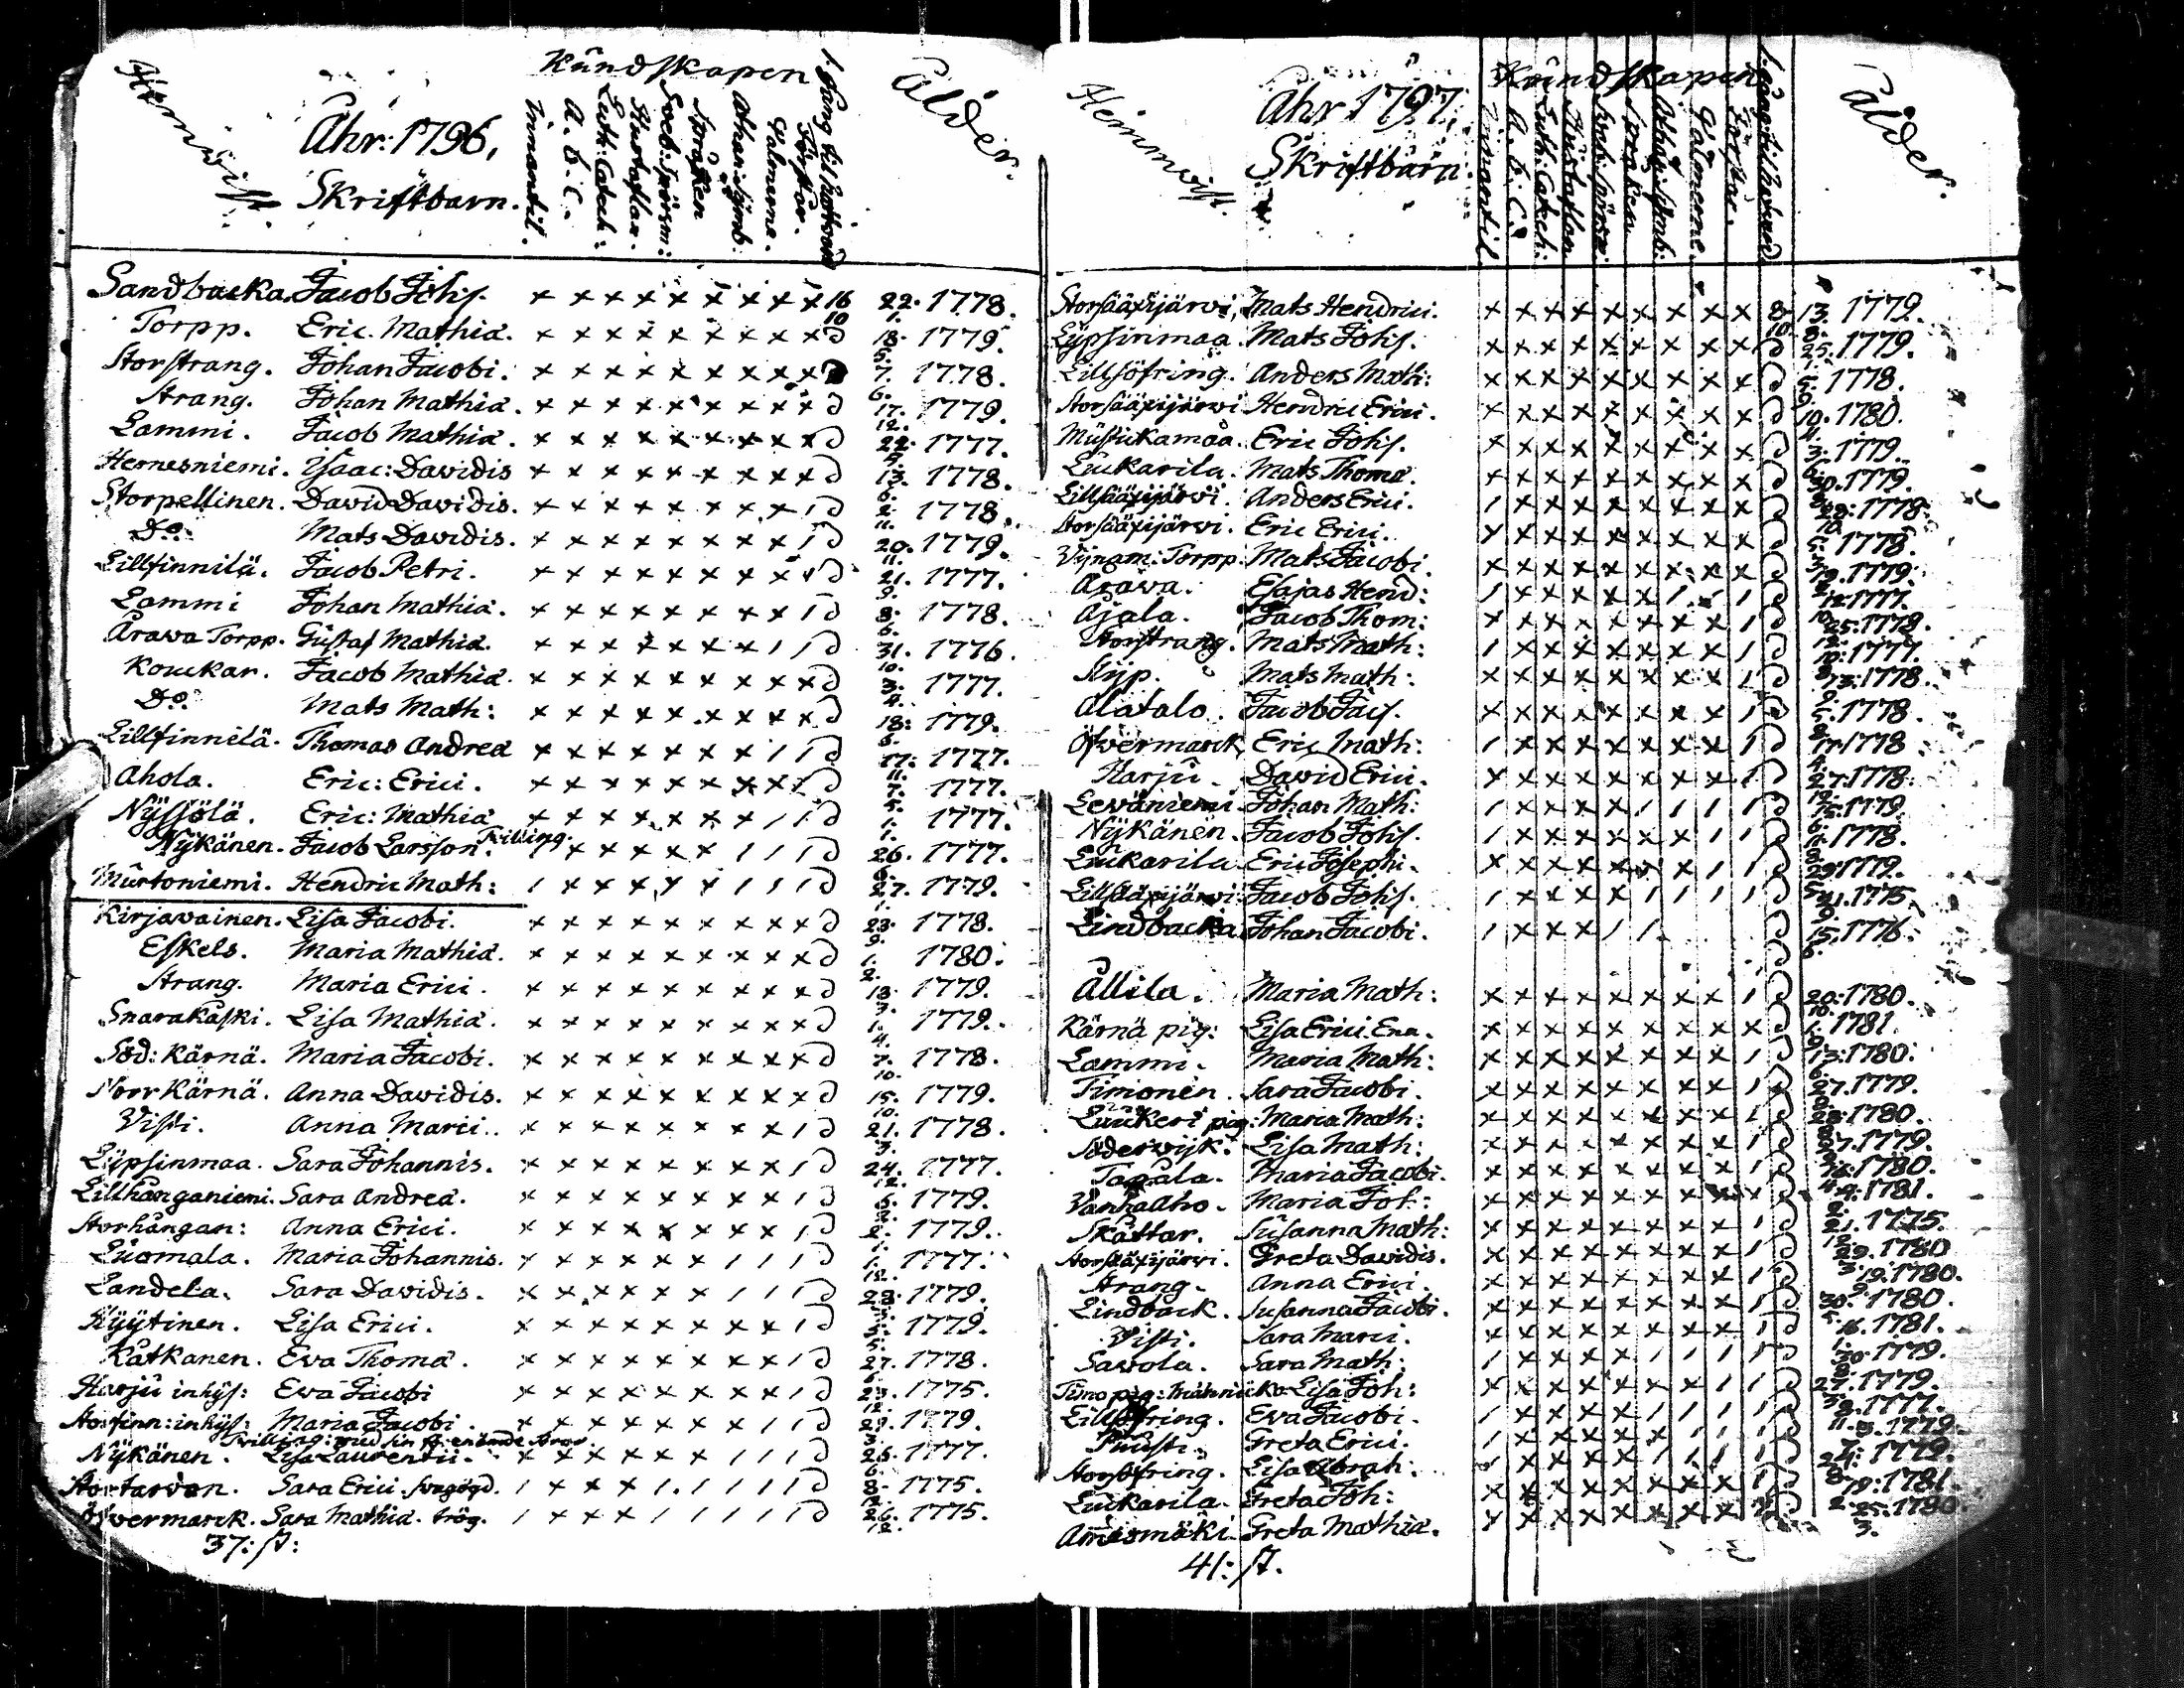 Hemwist.
Åhr: 1796,
Skriftbarn.
Kundskapen
Innantil.
A. B. C.
Luth: Catech:
Hustaflan.
Sveb: Spörsm:
Språken
Athan: Symb:
Psalmerne.
Förstår.
1. Gång til Nattvard
Ålder.
Sandbacka. Jacob Johs. × × × × × × × × × 16/10 22./1. 1778.
Torpp. Eric. Mathiæ. × × × × × × × × × 18./5. 1779.
Storstrang. Johan Jacobi. × × × × × × × × × 7./6. 1778.
Strang. Johan Mathiæ. × × × × × × × × × 17./12. 1779.
Lammi. Jacob Mathiæ. × × × × × × × × × 22. 1777.
Hernesniemi. Isaac: Davidis × × × × × × × × × 13./6. 1778.
Storpellinen. David Davidis. × × × × × × × × / 2./11. 1778.
Do. Mats Davidis. × × × × × × × × / 20./11. 1779.
Lillfinnilä. Jacob Petri. × × × × × × × × × 21./9. 1777.
Lammi Johan Mathiæ. × × × × × × × × / 8./6. 1778.
Arawa Torpp. Gustaf Mathiæ. × × × × × × × / / 31./10. 1776.
Kouckar. Jacob Mathiæ. × × × × × × × × × 3./4. 1777.
Do. Mats Math: × × × × × × × × × 18:/6. 1779.
Lillfinnilä. Thomas Andreæ × × × × × × × / / 17:/11. 1777.
Ahola. Eric: Erici. × × × × × × × × × 7./5. 1777.
Nyssölä. Eric: Mathiæ × × × × × × × / / 1./1. 1777.
Nykänen. Jacob Larsson. Tvilling. / × × × × × / / / 26./6. 1777.
Murtoniemi. Hendric Math: / × × × × × / / / 27./1. 1779.
Kirjavainen. Lisa Jacobi. × × × × × × × × × 23./9. 1778.
Eskels. Maria Mathiæ. × × × × × × × × × 1./2. 1780.
Strang. Maria Erici. × × × × × × × × × 13./7. 1779.
Snarakaski. Lisa Mathiæ. × × × × × × × × × 1./4. 1779.
Söd: Kärnä. Maria Jacobi. × × × × × × × × × 7./10. 1778.
Norr Kärnä. Anna Davidis. × × × × × × × × × 15./10. 1779.
Visti. Anna Marci. × × × × × × × × / 21./3. 1778.
Lypsinmaa. Sara Johannis. × × × × × × × × / 24./12. 1777.
Lillhånganiemi. Sara Andreæ. × × × × × × × × / 6. 1779.
Storhångan: Anna Erici. × × × × × × × × / 2./1. 1779.
Luomala. Maria Johannis. × × × × × × / / / 1./12. 1777.
Landela. Sara Davidis. × × × × × × / / / 28. 1779.
Kyytinen. Lisa Erici. × × × × × × × × / 5./5. 1779.
Katkanen. Eva Thomæ. × × × × × × × × / 27./6. 1778.
Harju inhys: Eva Jacobi × × × × × × × × / 23./12. 1775.
Storfinn: inhys: Maria Jacobi. × × × × × × × / / 29./3. 1779.
Tvilling: med sin
Nykänen. Lisa Laurentii. × × × × × × / / / 26./6. 1777.
Stortarvan. Sara Erici. / × × × / / / / / 8./12. 1775.
Öfvermarck. Sara Mathiæ. trög. / × × × / / / / / 26./12. 1775.
37: st:
Hemwist.
Åhr 1797.
Skriftbarn.
Kundskapen
Innantil
A. B. C.
Luth: Catech:
Hustaflan
Sveb: Spörsm:
Språken
Athan: Symb:
Psalmerne.
Förstår.
1. Gång til Nattvard
Ålder.
Storsääxijärvi, Mats Hendrici. × × × × × × × × × 8/10 13./8. 1779.
Lypsinmaa. Mats Johs. × × × × × × × × × 25./1. 1779.
Lillsöfring. Anders Math: × × × × × × × × × 5./9. 1778.
Storsääxijärwi Hendric Erici. × × × × × × × × × 10./11. 1780.
Mustikamaa. Eric Johs. × × × × × × × × × 3./6. 1779.
Luckarila. Mats Thomæ. × × × × × × × × × 30. 1779.
Lillsääxijärvi. Anders Erici. / × × × × × × × × 28:/10. 1778.
Storsääxijärwi. Eric Erici. × × × × × × × × × 1778.
Torpp: Mats Jacobi. × × × × × × × × × 19. 1779.
Arawa. Esajas Hend: / × × × × × / / / 12. 1777.
Ajala. Jacob Thom: × × × × × × × × / 25. 1778.
Storstrang. Mats Math: / × × × × × × × / 10: 1777.
Kyp. Mats Math: × × × × × × × × / 13: 1778.
Alatalo. Jacob Jacs. × × × × × × × × / 5. 1778.
Öfvermarck Eric Math: / × × × × × × × / 17. 1778
Harju. David Erici. × × × × × × × × / 27: 1778.
Leväniemi Johan Math: / × × × × / / / / 1779.
Nykänen. Jacob Johs. / × × × × × × / / 1778.
Luckarila Eric Josephi. × × × × × × × / / 29. 1779.
Lillsääxijärwi Jacob Johs. / × × × × / / / / 21. 1775.
Lindbacka Johan Jacobi. / × × × / / 15./6. 1776.
Allila. Maria Math: × × × × × × × × / 20:/10. 1780.
Kärnä pig: Lisa Erici. × × × × × × × × × 1./9. 1781.
Lammi. Maria Math: × × × × × × × × / 13:/6. 1780.
Timonen. Sara Jacobi. × × × × × × × × / 27. 1779.
Luuckeri pig: Maria Math: × × × × × × × × / 28: 1780.
Söderwijk. Lisa Math: × × × × × × × × / 27. 1779.
Maria Jacobi. × × × × × × × × / 1780.
Vanhaaho. Maria Joh: × × × × × × × 9. 1781.
Skattar. Susanna Math: × × × × × × × × / 21./12. 1775.
Storsääxijärvi. Greta Davidis. × × × × × × × × / 29./3. 1780
Strang. Anna Erici. × × × × × × × × / 19. 1780.
Lindback. Susanna Jacobi. × × × × × × × × / 30. 1780.
Visti. Sara Marci. × × × × × × × × / 16. 1781.
Savola. Sara Math: / × × × × / / / / 30. 1779.
Lisa Joh: × × × × × × × / / 27. 1779.
Lillsöfring. Eva Jacobi. / × × × × / / / / 1777.
Puusti. Greta Erici. / × × × × × / / / 1779.
Storsöfring. Lisa Abrah: / × × × × / / / / 24: 1779.
Luckarila. Greta Joh: × × × × × × × × / 19: 1781.
Greta Mathiæ. × × × × × × × × 25./3. 1780.
41: st.